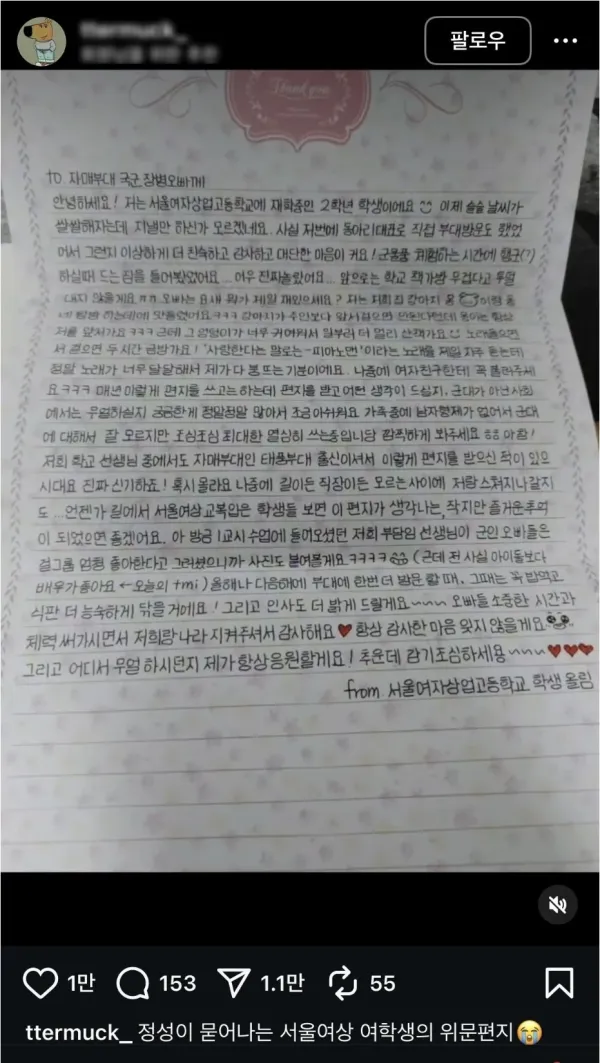 ttermuck_
팔로우
Thank you
to. 자매부대 국군 장병오빠께
안녕하세요! 저는 서울여자상업고등학교에 재학중인 2학년 학생이에요 이제 슬슬 날씨가
쌀쌀해지는데 지낼만 하신가 모르겠네요. 사실 저번에 동아리대표로 직접 부대방문도 했었
어서 그런지 이상하게 더 친숙하고 감사하고 대단한 마음이 커요! 군용품 체험하는 시간에 행군(?)
하실때 드는 짐을 들어봤었어요... 어우 진짜놀랐어요... 앞으로는 학교 책가방 무겁다고 투덜
대지 않을게요ㅠㅠ 오빠는 요새 뭐가 제일 재밌으세요? 저는 저희 집 강아지 몽이랑 동
네 탐방 하는데에 맛들렸어요ㅋㅋㅋ 강아지가 주인보다 앞서걸으면 안된다던데 몽이는 항상
저를 앞서가요ㅋㅋㅋ 근데 그 엉덩이가 너무 귀여워서 일부러 더 멀리 산책가요 노래들으면
서 걸으면 두시간 금방가요! '사랑한다는 말로는-피아노맨'이라는 노래를 제일 자주 듣는데
정말 노래가 너무 달달해서 제가 다 붕 뜨는 기분이에요. 나중에 여자친구한테 꼭 불러주세
요ㅋㅋㅋ 매년 이렇게 편지를 쓰고는하는데 편지를 받고 어떤 생각이 드실지, 군대가 아닌사회
에서는 무얼하실지 궁금한게 정말정말 많아서 조금 아쉬워요 가족중에 남자형제가 없어서 군대
에 대해서 잘 모르지만 조심조심 최대한 열심히 쓰는중입니당 깜찍하게 봐주세요 ㅎㅎ 아참!
저희 학교 선생님 중에서도 자매부대인 태풍부대 출신이셔서 이렇게 편지를 받으신 적이 있으
시대요 진짜 신기하죠! 혹시 몰라요 나중에 길이든 직장이든 모르는사이에 저랑 스쳐지나갈지
도 ...언젠가 길에서 서울여상 교복입은 학생들 보면 이 편지가 생각나는, 작지만 즐거운추억
이 되었으면 좋겠어요. 아 방금 1교시 수업에 들어오셨던 저희 부담임 선생님이 군인 오빠들은
걸그룹 엄청 좋아한다고 그러셨으니까 사진도 붙여볼게요ㅋㅋㅋㅋ (근데 전 사실 아이돌보다
배우가좋아요 ← 오늘의 tmi) 올해나 다음해에 부대에 한번 더 방문 할 때, 그때는 꼭 반역고
식판 더 능숙하게 닦을 거에요! 그리고 인사도 더 밝게 드릴게요~~~ 오빠들 소중한 시간과
체력 써가시면서 저희랑 나라 지켜주셔서 감사해요♥ 항상 감사한 마음 잊지 않을게요
그리고 어디서 무얼 하시던지 제가 항상응원할게요! 추운데 감기조심하세용~~~♥♥♥
from. 서울여자상업고등학교 학생 올림
1만 153 1.1만 55
ttermuck_ 정성이 묻어나는 서울여상 여학생의 위문편지😭